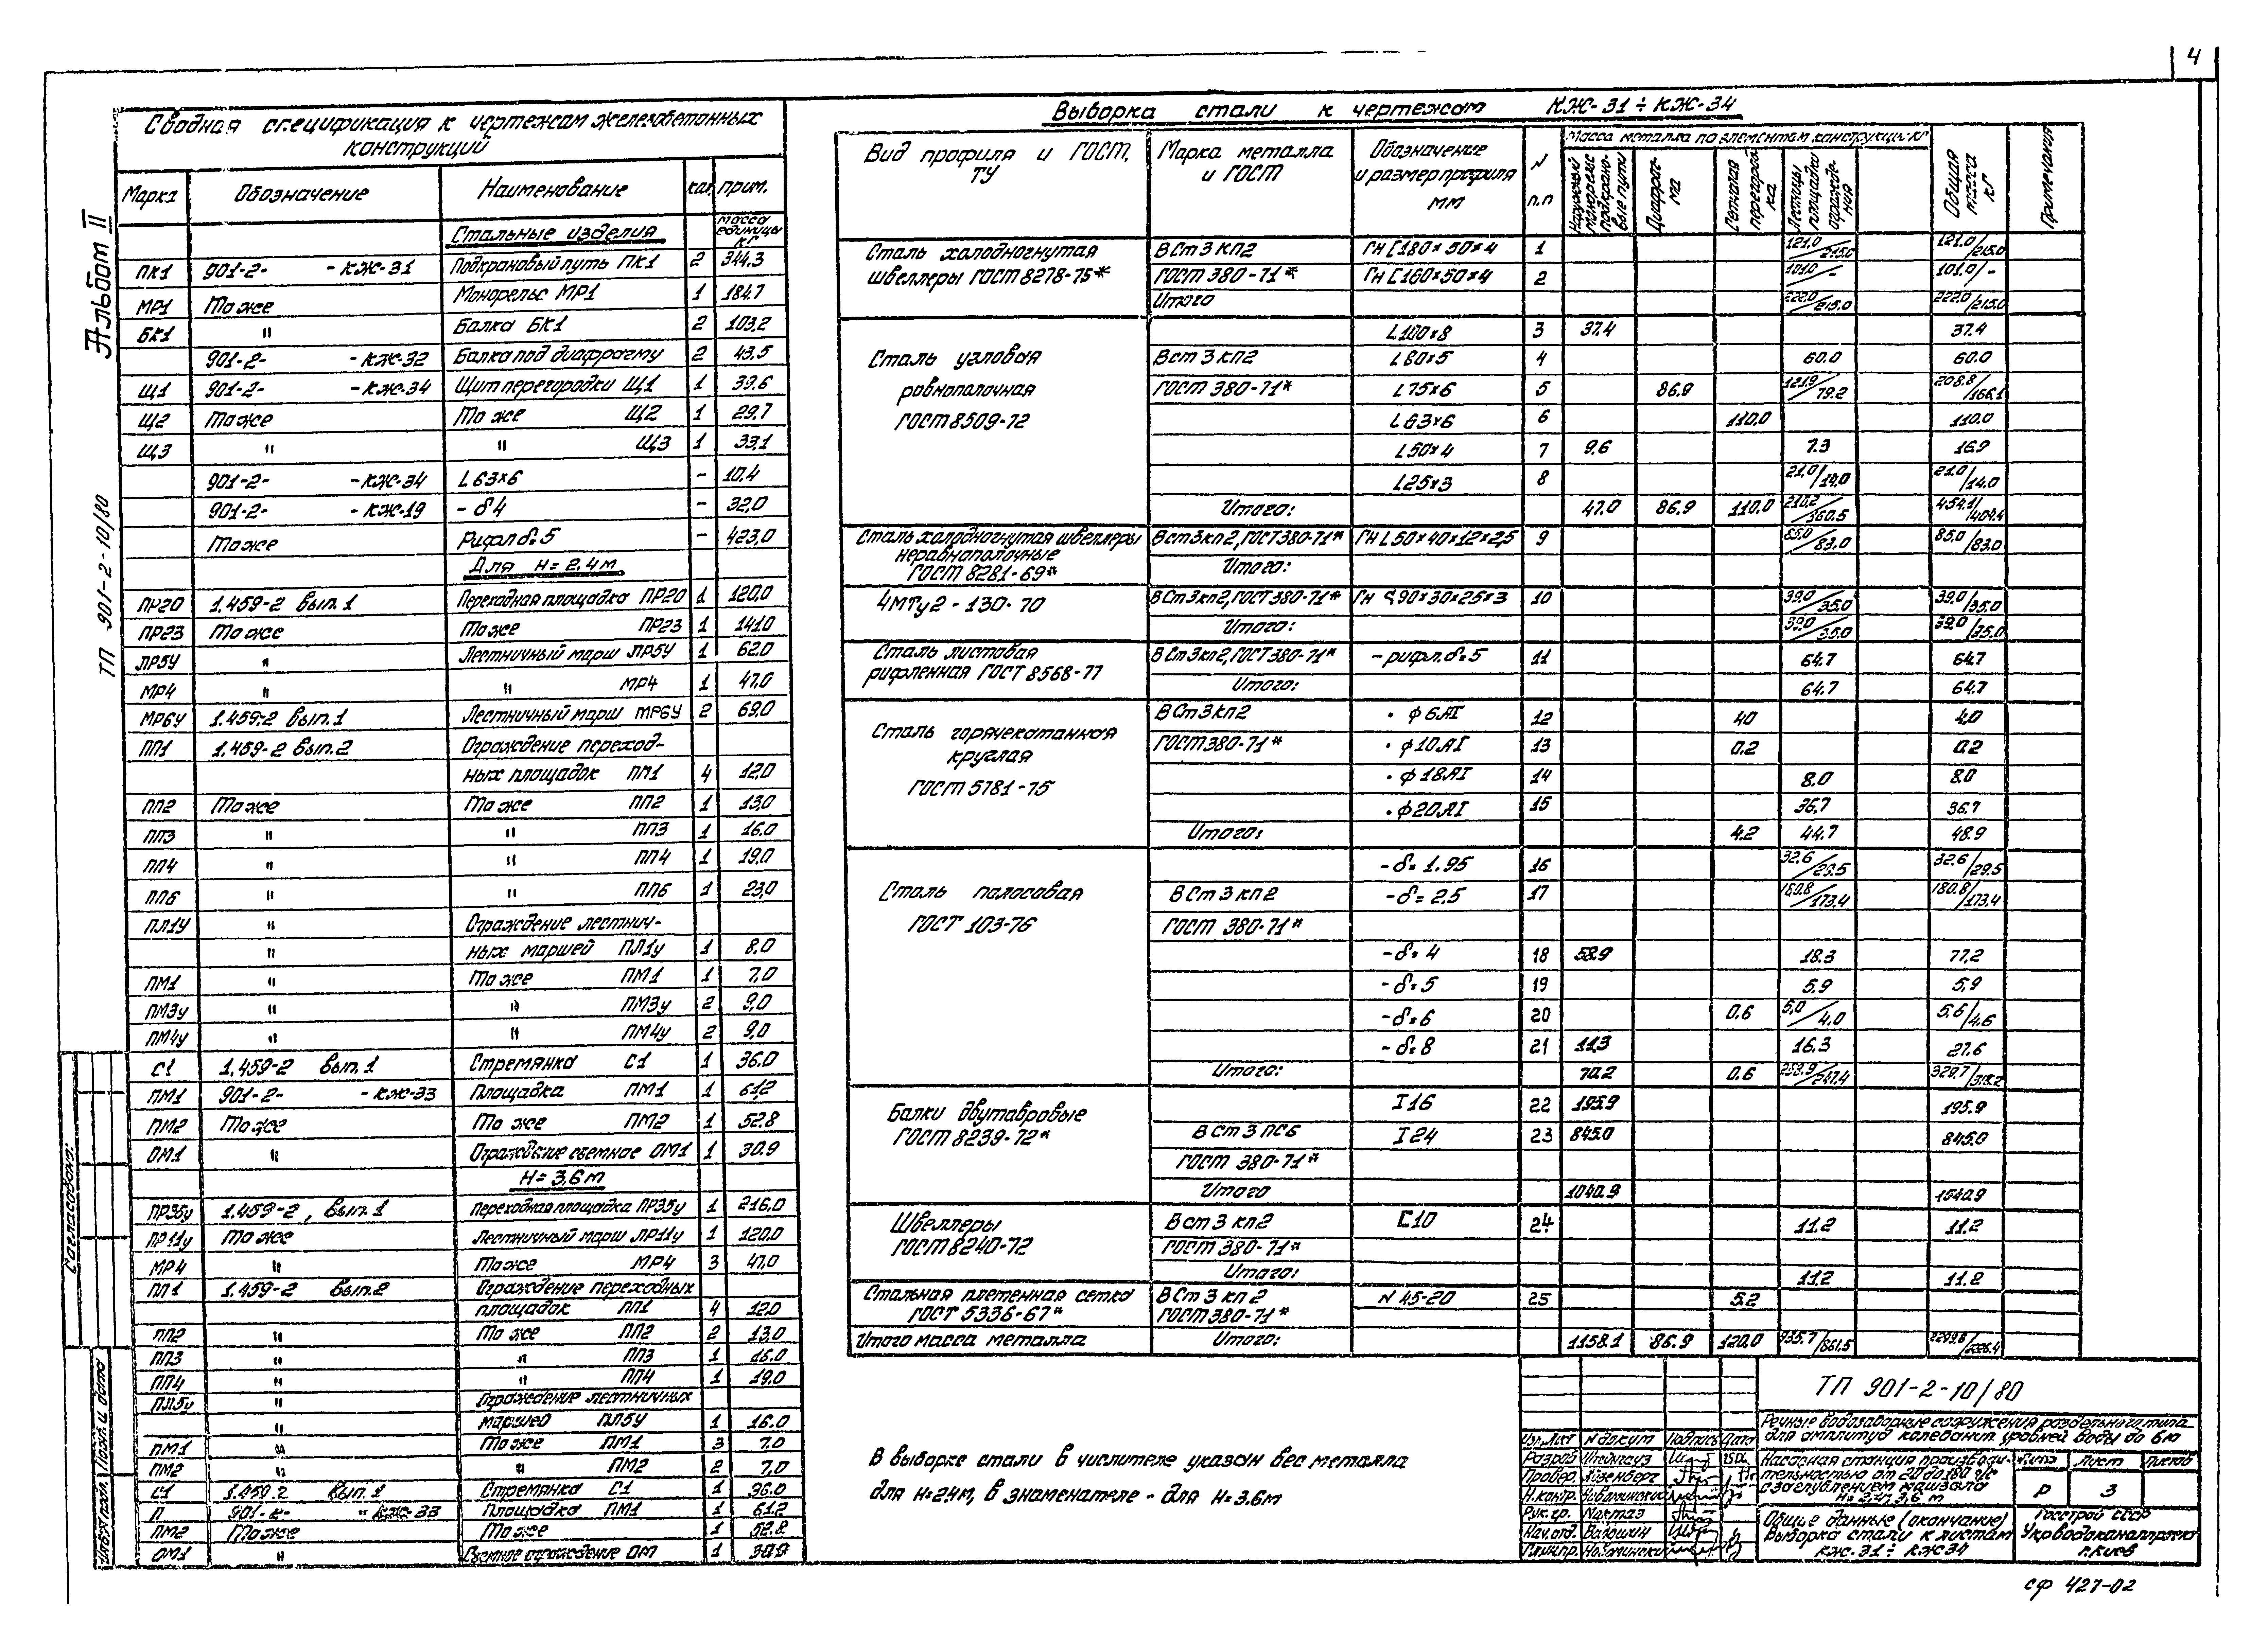 4
Альбом II
ТП 901-2-10/80
Сводная спецификация к чертежам железобетонных
конструкций
Марка Обозначение Наименование кол. прим.
Стальные изделия масса единицы кг
ПК1 901-2- -КЖ-31 Подкрановый путь ПК1 2 344.3
МР1 То же Монорельс МР1 1 184.7
БК1 " Балка БК1 2 103,2
901-2- -КЖ-32 Балка под диафрагму 2 43.5
Щ1 901-2- -КЖ-34 Щит перегородки Щ1 1 39.6
Щ2 То же То же Щ2 1 29,7
Щ3 " " Щ3 1 33,1
901-2- -КЖ-34 L63×6 - 10.4
901-2- -КЖ-19 -δ4 - 32,0
То же Рифл δ=5 - 423,0
Для H=2.4м
ПР20 1.459-2 вып.1 Переходная площадка ПР20 1 120,0
ПР23 То же То же ПР23 1 141.0
ЛР5У " Лестничный марш ЛР5У 1 62.0
МР4 " " МР4 1 47.0
МР6У 1.459-2 вып.1 Лестничный марш МР6У 2 69,0
ПП1 1.459-2 вып.2 Ограждение переход-
ных площадок ПП1 4 12.0
ПП2 То же То же ПП2 1 13.0
ПП3 " " ПП3 1 16.0
ПП4 " " ПП4 1 19.0
ПП6 " " ПП6 1 23,0
ПЛ1У " Ограждение лестнич-
" ных маршей ПЛ1у 1 8.0
ПМ1 " То же ПМ1 1 7,0
ПМ3у " " ПМ3у 2 9,0
ПМ4у " " ПМ4у 2 9,0
С1 1.459-2 вып.1 Стремянка С1 1 36.0
ПМ1 901-2- -КЖ-33 Площадка ПМ1 1 61,2
ПМ2 То же То же ПМ2 1 52.8
ОМ1 " Ограждение съемное ОМ1 1 30.9
H=3,6м
ПР35у 1.459-2, вып.1 Переходная площадка ПР35у 1 216.0
ЛР11у То же Лестничный марш ЛР11у 1 120.0
МР4 " То же МР4 3 47,0
ПП1 1.459-2 вып.2 Ограждение переходных
площадок ПП1 4 12.0
ПП2 " То же ПП2 2 13,0
ПП3 " " ПП3 1 16.0
ПП4 " " ПП4 1 19.0
ПЛ5у " Ограждение лестничных
" маршей ПЛ5У 1 16.0
ПМ1 " То же ПМ1 3 7.0
ПМ2 " " ПМ2 2 7,0
С1 1.459.2 вып.1 Стремянка С1 1 36.0
П 901-2- -КЖ-33 Площадка ПМ1 1 61.2
ПМ2 То же То же 1 52.8
ОМ1 " Съемное ограждение ОМ 1
Согласовано:
Инв.№ подл. Подп. и дата
Выборка стали к чертежам КЖ-31÷КЖ-34
Вид профиля и ГОСТ, ТУ Марка металла и ГОСТ Обозначение и размер профиля мм N п.п Масса металла по элементам конструкции, кг Общая масса кг Примечания
Наружный монорельс подкрановые пути Диафрагма Сетчатая перегородка Лестницы площадки ограждения
Сталь холодногнутая ВСт3 КП2 ГН [180×50×4 1 121.0/215.0 121.0/215.0
швеллеры ГОСТ 8278-75* ГОСТ 380-71* ГН [160×50×4 2 101.0/- 101.0/-
Итого 222.0/215.0 222.0/215.0
L100×8 3 37.4 37.4
Сталь угловая ВСт3кп2 L80×5 4 60.0 60.0
равнополочная ГОСТ 380-71* L75×6 5 86.9 121.9/79.2 208.8/166.1
ГОСТ 8509-72 L63×6 6 110,0 110.0
L50×4 7 9.6 7.3 16.9
L25×3 8 21.0/14.0 21.0/14.0
Итого: 47.0 86.9 110.0 210.2/160.5 454.1/404.4
Сталь холодногнутая швеллеры ВСт3кп2, ГОСТ 380-71* ГН L50×40×12×2,5 9 85.0/83.0 85.0/83.0
неравнополочные
ГОСТ 8281-69* Итого:
4МТУ2-130-70 ВСт3кп2, ГОСТ 380-71* ГН 90×30×25×3 10 39.0/35.0 39.0/35.0
Итого: 39.0/35.0 39.0/35.0
Сталь листовая ВСт3кп2, ГОСТ 380-71* -рифл. δ=5 11 64.7 64.7
рифленная ГОСТ 8568-77 Итого: 64.7 64.7
ВСт3кп2 • ϕ6АI 12 4.0 4,0
Сталь горячекатанная ГОСТ 380-71* • ϕ10АI 13 0.2 0.2
круглая • ϕ18АI 14 8.0 8.0
ГОСТ 5781-75 • ϕ20АI 15 36.7 36.7
Итого: 4.2 44.7 48.9
-δ=1.95 16 32.6/29.5 32.6/29.5
Сталь полосовая ВСт3кп2 -δ=2.5 17 180.8/173.4 180.8/173.4
ГОСТ 103-76 ГОСТ 380-71*
-δ=4 18 58.9 18.3 77,2
-δ=5 19 5,9 5,9
-δ=6 20 0.6 5,0/4,0 5,6/4.6
-δ=8 21 11,3 16.3 27.6
Итого: 70.2 0.6 258.9/247.4 329.7/318.2
Балки двутавровые I16 22 195.9 195.9
ГОСТ 8239-72* ВСт3пс6 I24 23 845.0 845.0
ГОСТ 380-71*
Итого 1040.9 1040.9
Швеллеры ВСт3кп2 [10 24 11.2 11.2
ГОСТ 8240-72 ГОСТ 380-71*
Итого: 11.2 11.2
Стальная плетенная сетка ВСт3кп2 N 45-20 25 5.2
ГОСТ 5336-67* ГОСТ 380-71*
Итого масса металла Итого: 1158.1 86.9 120,0 935.7/861,5
В выборке стали в числителе указан вес металла
для H=2.4м, в знаменателе - для H=3.6м
ТП 901-2-10/80
Речные водозаборные сооружения раздельного типа
для амплитуд колебания уровней воды до 6м
Изм. Лист N докум Подпись Дата
Разраб
Провер. Айзенберг
Н.контр. Новоминский
Рук.гр.
Нач.отд. Вайсман
Гл.инж.пр. Новоминский
Насосная станция производи-
тельностью от 20 до 180 л/с
с заглублением машзала
H=2,4; 3,6 м
Лист Листов
Р 3
Общие данные (окончание)
Выборка стали к листам
КЖ-31÷КЖ34
Госстрой СССР
Укрводоканалпроект
г.Киев
СФ 427-02